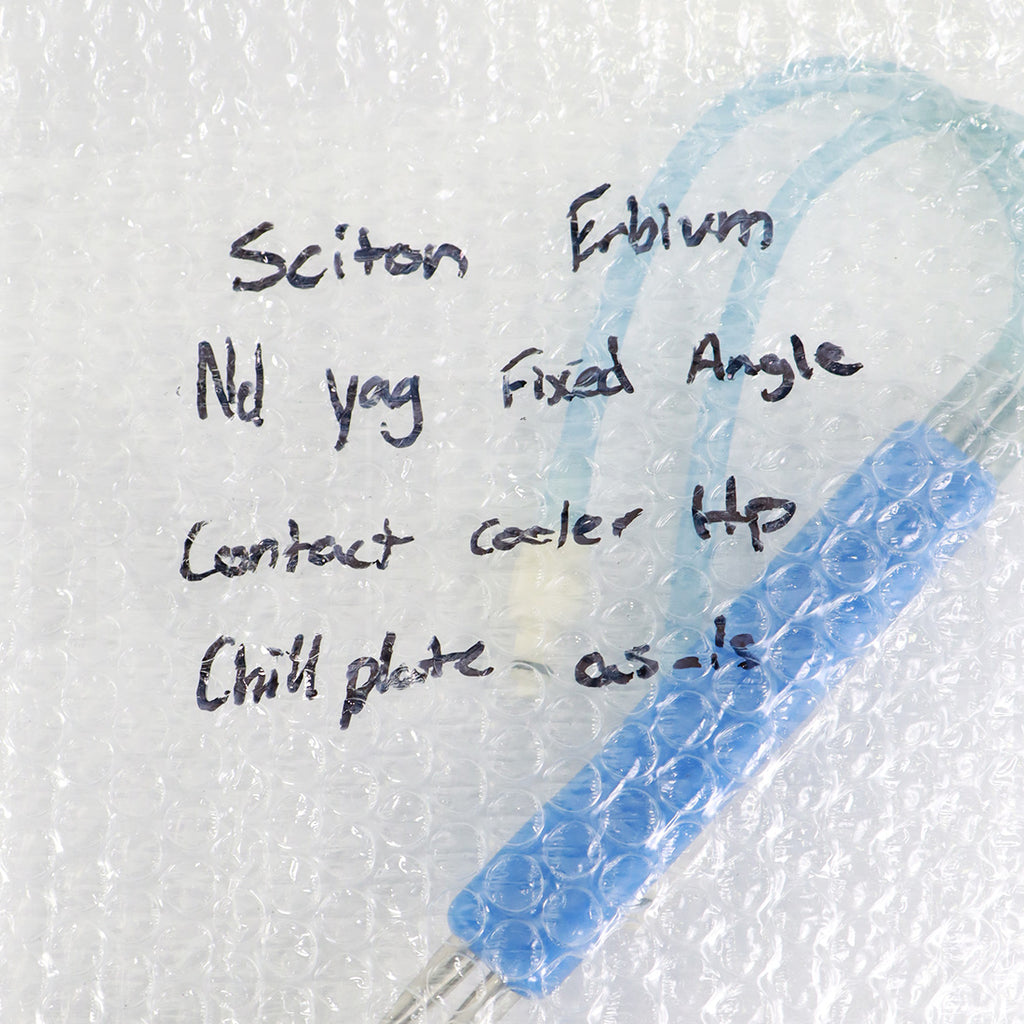 Sciton Erbium
Nd yag Fixed Angle
Contact cooler Hp
Chill plate - as-is